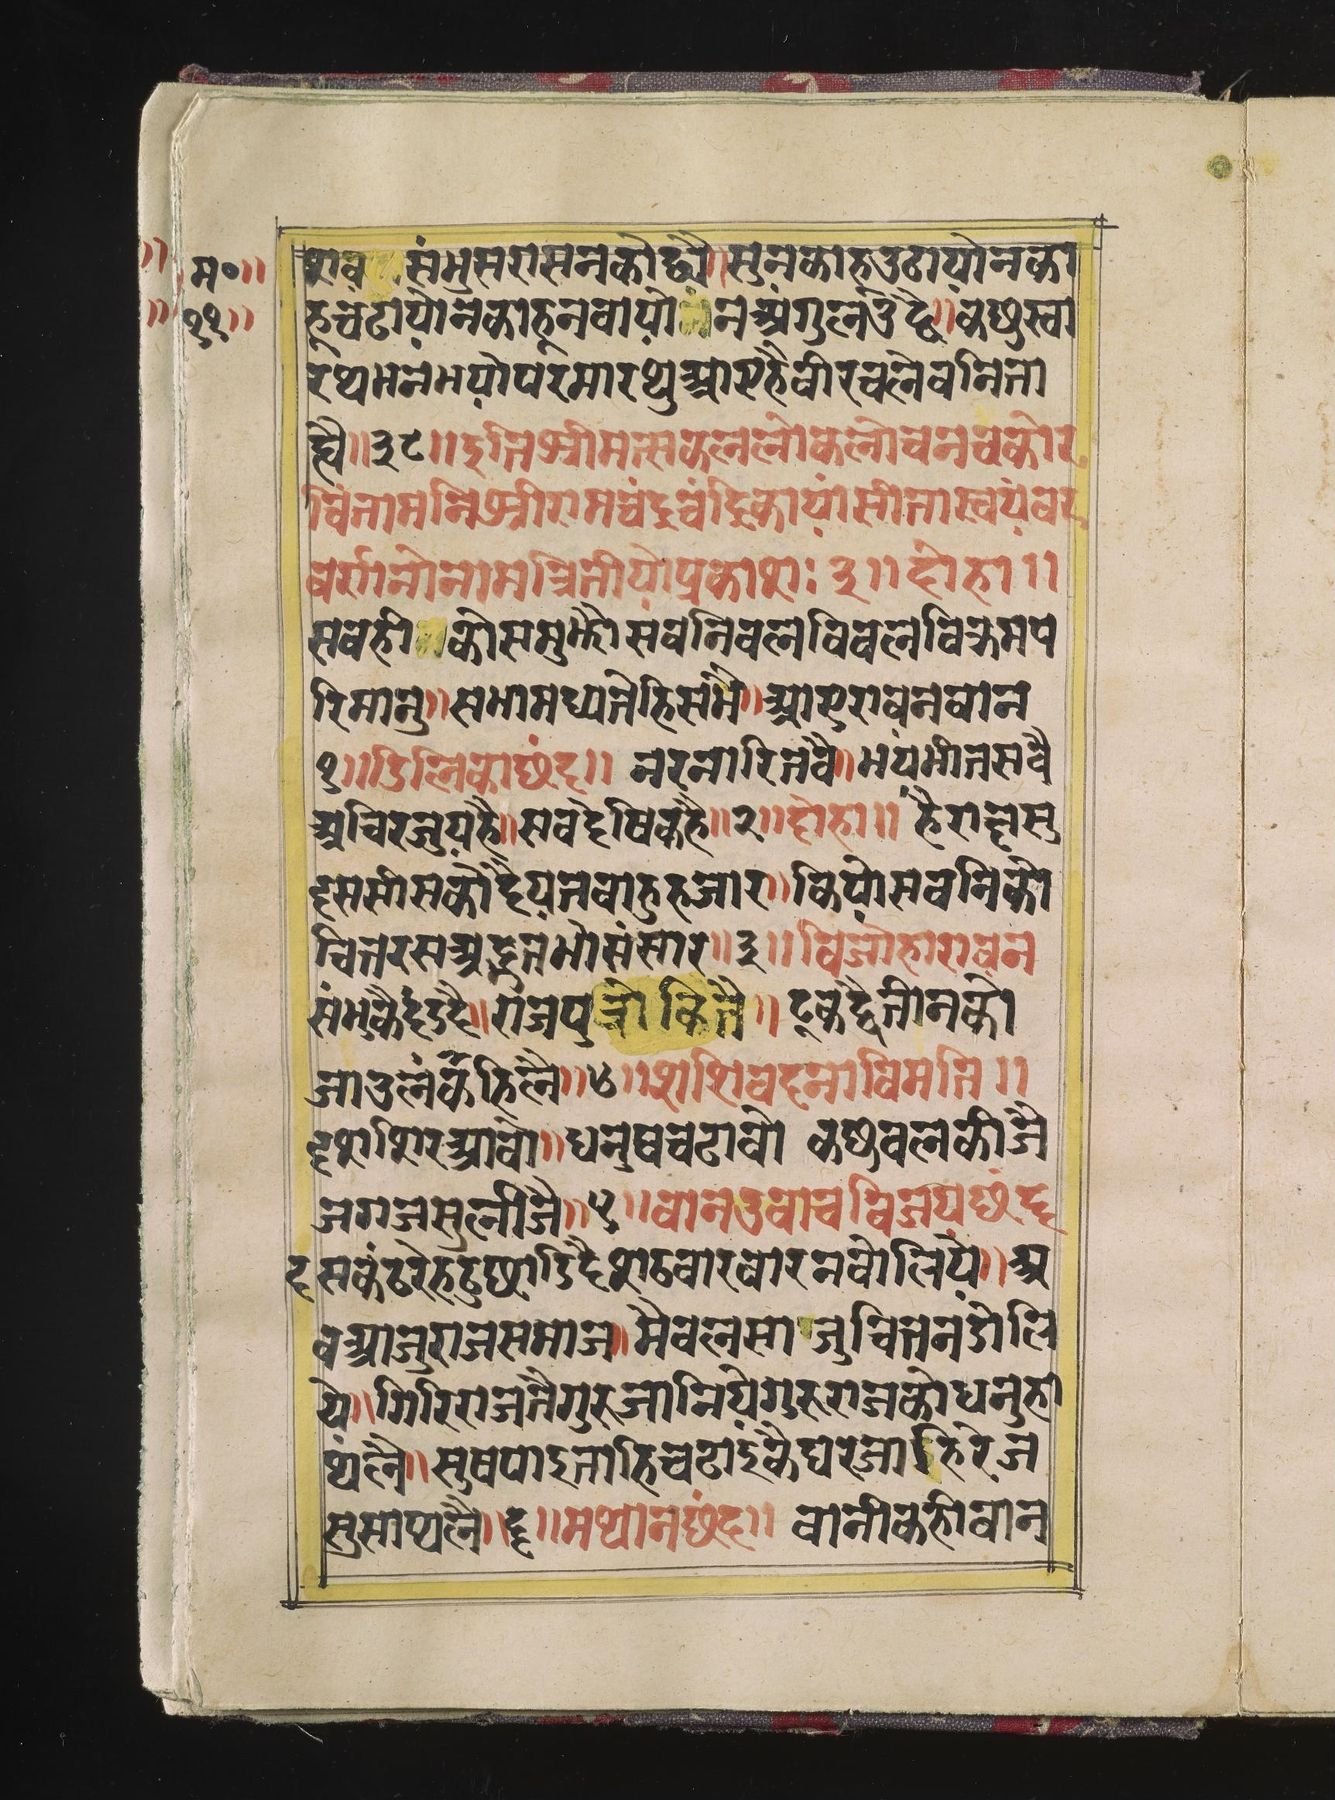 म॰॥
११॥
शव संभुसरासनकोद्वौ॥सुनकाहुउठायोनका
हूचंढायोनकाहूनवायो नअंगुलउद्वै॥कछुस्वा
रथमनमयोपरमारथुआएहैवीरचलेवनिता
ह्वै॥३८॥इतिश्रीमत्सकललोकलोचनचकोर
चिंतामनिश्रीरामचंद्रचंद्रिकायांसीतास्वयंवर
वर्गानोनामत्रितीयोप्रकाशः३॥दोहा॥
सवही कोसमुझौसवनिवलविवलविक्रमप
रिमानु॥सभामध्यतेहिसमै॥आएरावनवान
१॥डिल्लिकाछंद॥ नरनारिजवै॥भयभीतसवै
अचिरजुयहै॥सवदेषिकहै॥२॥दोहा॥ हैराक्षसु
दससीसकौदैयतवाहुहजार॥कियोसवनिकौ
चितरसअद्भुतभौसंसार॥३॥विजोहारावन
संभुकैदंडदै॥राजपुत्री कितै॥ टूकद्वैतीनकौ
जाउलंकहिलै॥४॥शशिवदनाविमति॥
दृशशिरआवो॥धनुषचढावो कछुवलकीजै
जगजसुलीजै॥५॥वानउवाचद्विजयछंद
दसकंठरेहठुछाडिदैशठवारवारनवोलिये॥अ
वआजुराजसमाज॥मैवलसाजुचितनडोलि
ये॥गिरिराजतैगुरुजानियेगुरुराजकोधनुहा
थलै॥सुषपाइताहिचढाइकैघरजाहिरेज
सुसाथलै॥६॥मथानछंद॥ वानीकहीवान